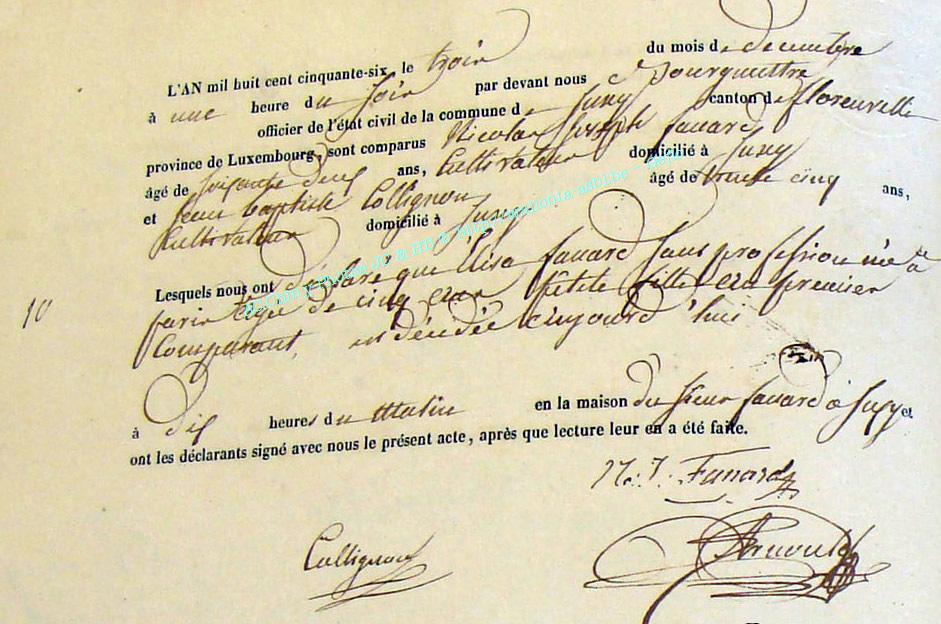 L'AN mil huit cent cinquante-six, le trois du mois de decembre
à une heure du soir par devant nous Bourguemestre
officier de l'état civil de la commune de Suxy canton de florenville
province de Luxembourg, sont comparus Nicolas Joseph fanard
âgé de soixante deux ans, Cultivateur domicilié à Suxy
et jean baptiste Collignon âgé de trente cinq ans,
Cultivateur domicilié à Suxy
Lesquels nous ont déclaré que Elisa fanard sans profession née à
10
paris agée de cinq ans petite fille du premier
Comparant, est décédée aujourd'hui
à dix heures du matin en la maison du sieur fanard à Suxy et
ont les déclarants signé avec nous le présent acte, après que lecture leur en a été faite.
N. J. Fanard
Collignon